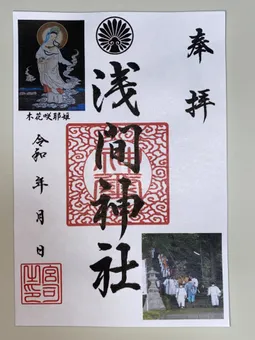 奉拝
浅間神社
木花咲耶姫
令和 年 月 日
宮司之印